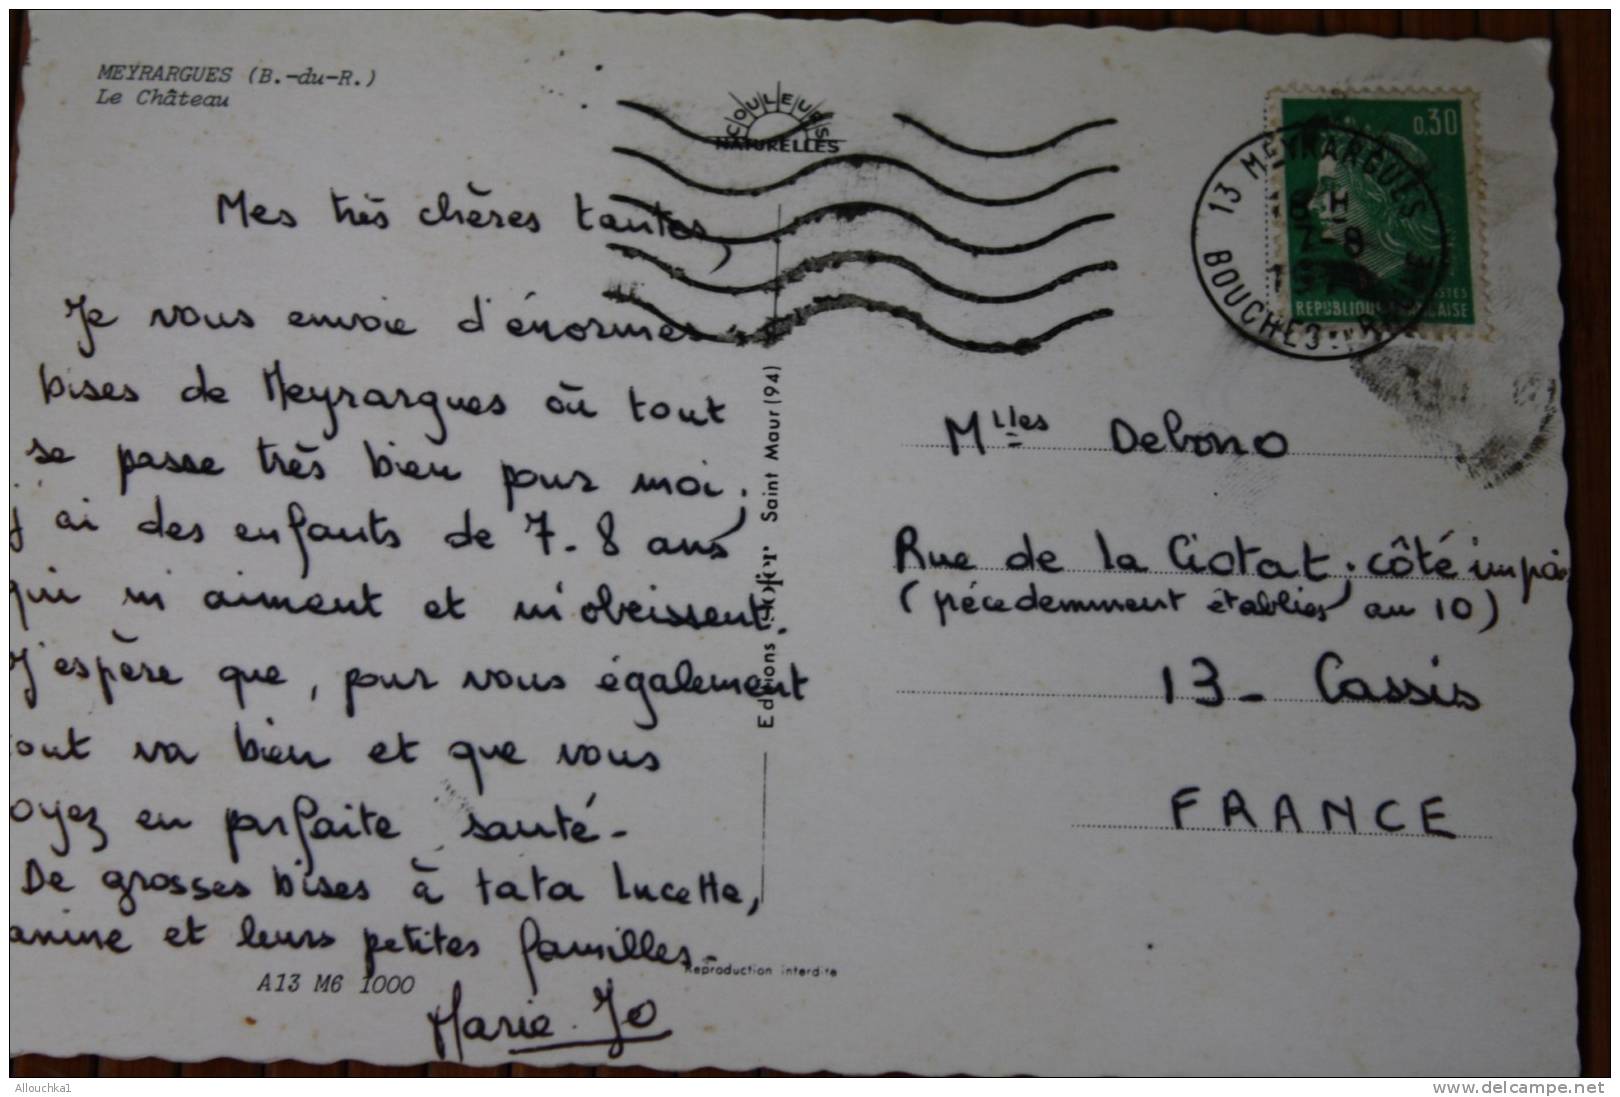 MEYRARGUES (B.-du-R.)
Le Château
COULEURS
NATURELLES
Mes très chères tantes,
Je vous envoie d'énormes
bises de Meyrargues où tout
se passe très bien pour moi.
j'ai des enfants de 7-8 ans
qui m'aiment et m'obeissent.
J'espère que, pour vous également
out va bien et que vous
oyez en parfaite santé-
De grosses bises à tata Lucette,
anine et leurs petites familles-
Marie-Jo
A13 M6 1000
Reproduction interdite
Editions Saint Maur (94)
0.30
REPUBLIQUE FRANÇAISE
13 MEYRARGUES
BOUCHES
Mlles Debono
Rue de la Ciotat. côté impai
(précedemment établies au 10)
13- Cassis
FRANCE
Allouchka1
www.delcampe.net